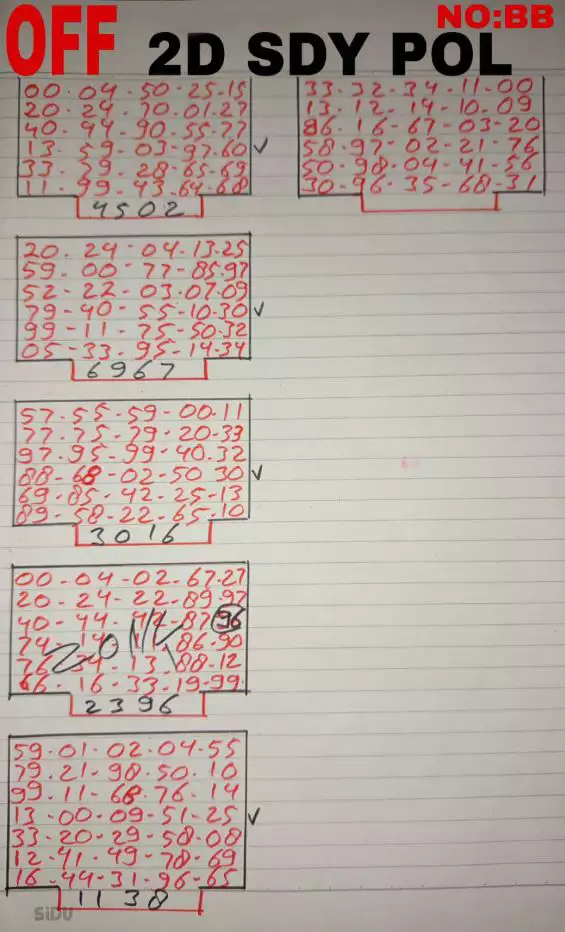 NO:BB
OFF 2D SDY POL
00-04-50-25-15
20-24-70-01-27
40-44-90-55-77
13-59-03-97-60 ✓
33-79-28-65-69
11-99-43-64-68
4502
33-32-34-11-00
13-12-14-10-09
86-16-67-03-20
58-97-02-21-76
50-98-04-41-56
30-96-35-68-31
20-24-04-13-25
59-00-77-85-97
52-22-03-07-09
79-40-55-10-30 ✓
99-11-75-50-32
05-33-95-14-34
6967
57-55-59-00-11
77-75-79-20-33
97-95-99-40-32
88-68-02-50 30 ✓
69-85-42-25-13
89-58-22-65-10
3016
00-04-02-67-27
20-24-22-89-97
40-44- -87 96
74-14- 86-90
76 34-13 88-12
66-16-33-19-99
2396
59-01-02-04-55
79-21-98-50-10
99-11-68-76-14
13-00-09-51-25 ✓
33-20-29-58-08
12-41-49-78-69
16-44-31-96-65
1138
SiDU